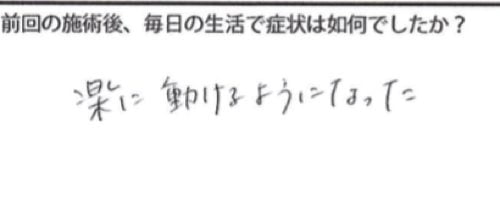 前回の施術後、毎日の生活で症状は如何でしたか？
楽に動けるようになった